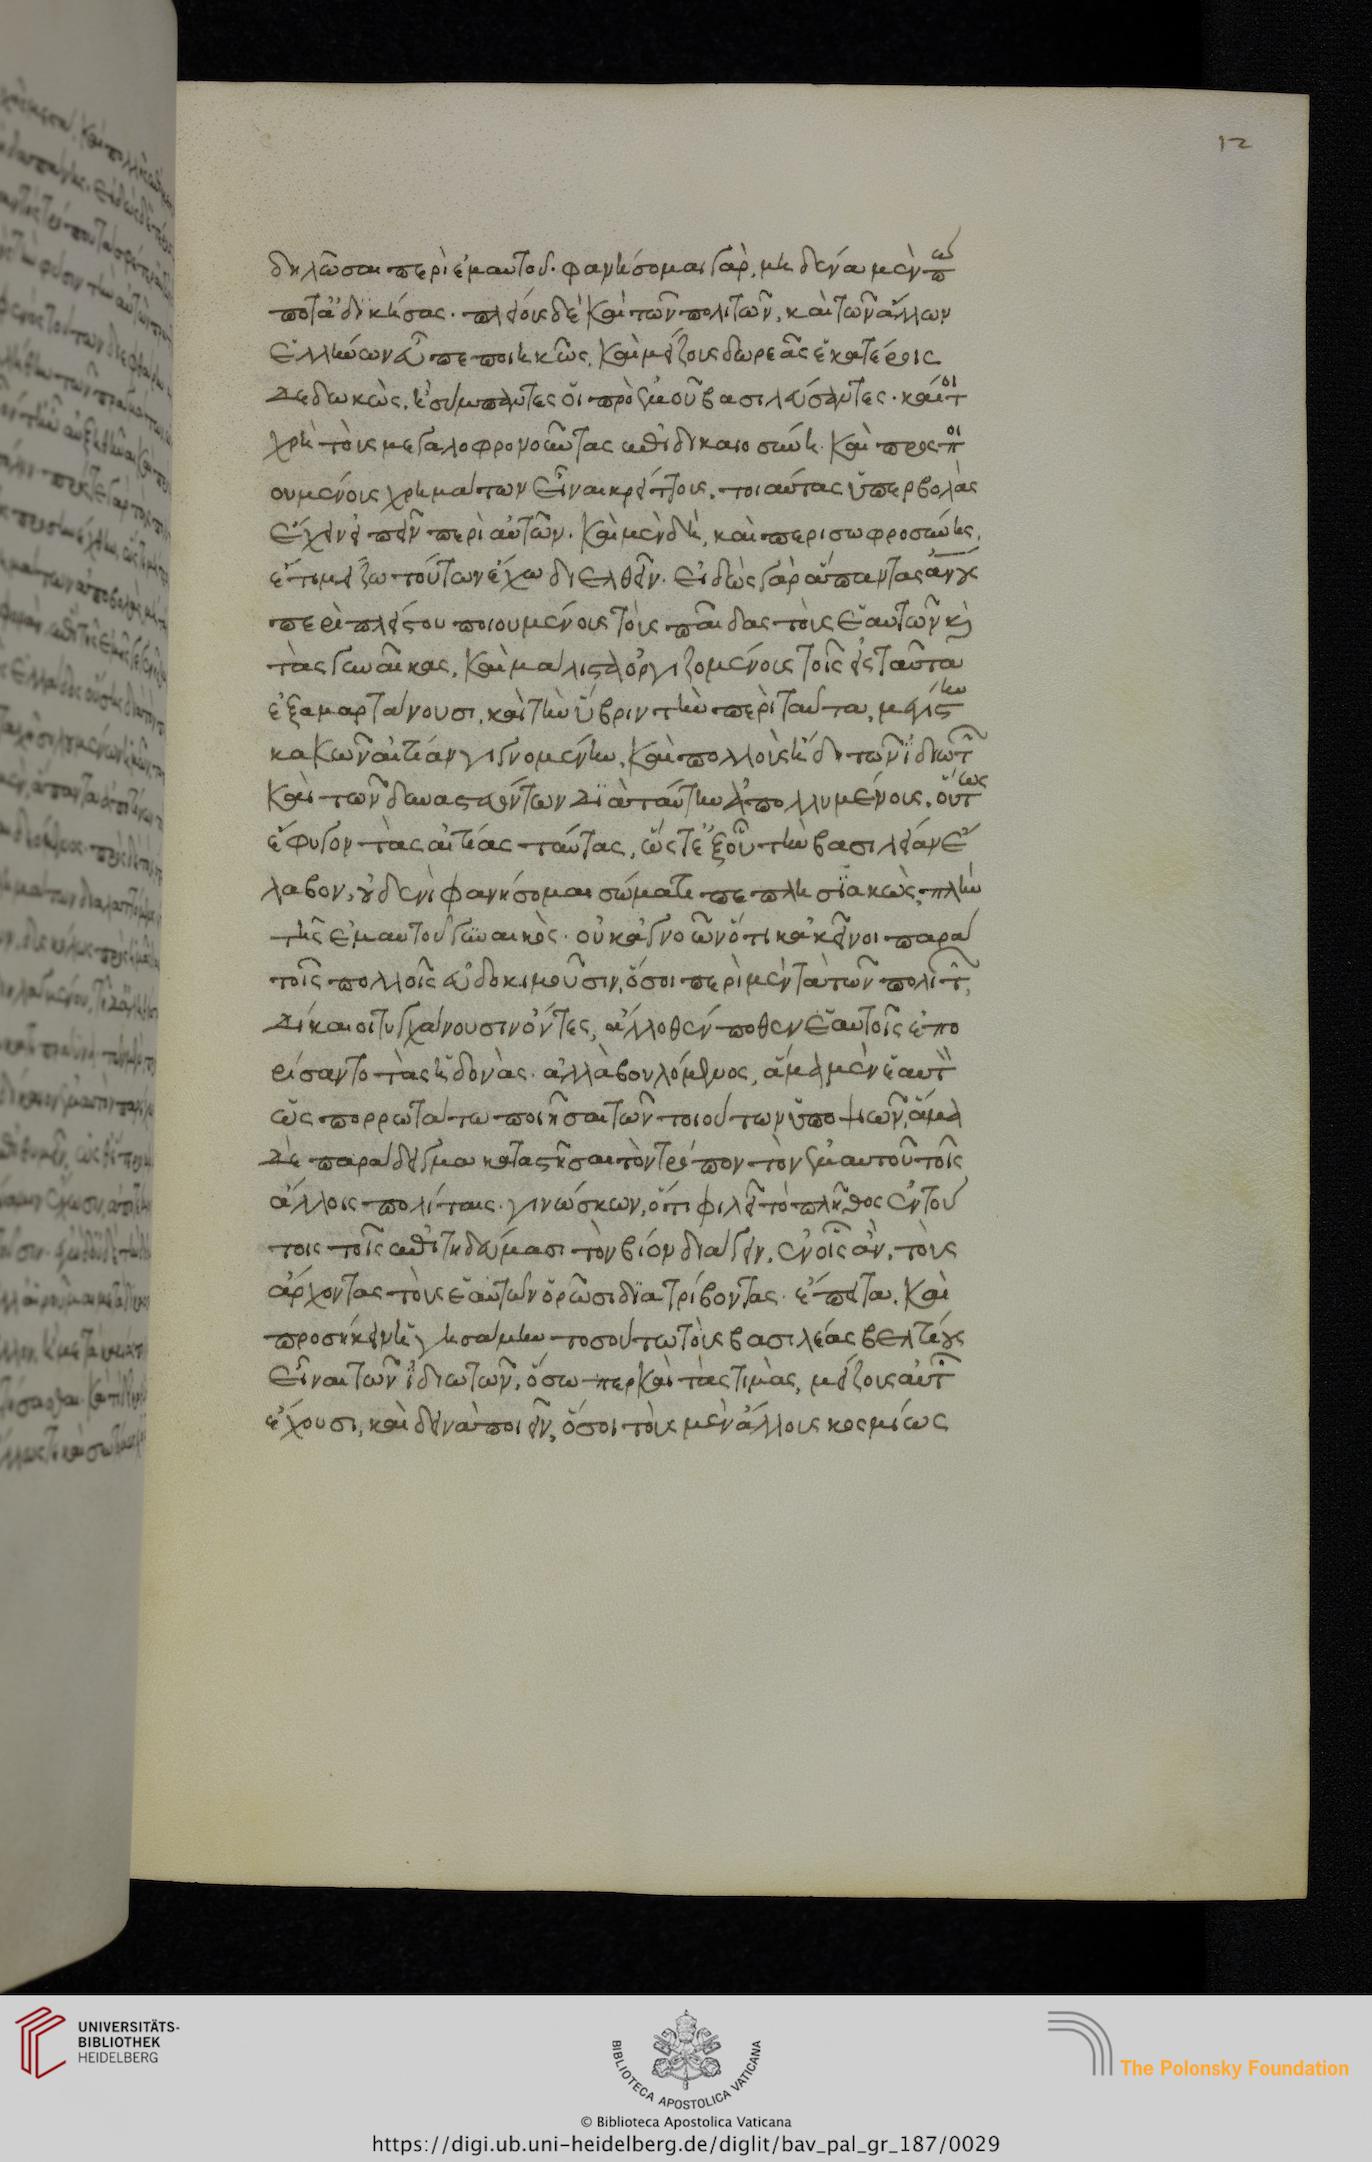 12
δηλῶσαι περὶ ἐμαυτοῦ. φανήσομαι γὰρ, μηδένα μὲν πώ
ποτ' ἀδικήσας. πλείους δὲ καὶ τῶν πολιτῶν, καὶ τῶν ἄλλων
ἑλλήνων εὖ πεποιηκὼς, καὶ μείζους δωρεὰς ἑκατέροις
δεδωκὼς, ἢ σύμπαντες οἱ πρὸ ἐμοῦ βασιλεύσαντες. καίτοι
χρὴ τοὺς μεγαλοφρονοῦντας ἐπὶ δικαιοσύνῃ. καὶ προσποι
ουμένους χρημάτων εἶναι κρείττους, τοιαύτας ὑπερβολὰς
ἔχειν εἰπεῖν περὶ αὑτῶν. καὶ μὲν δὴ, καὶ περὶ σωφροσύνης,
ἔτι μείζω τούτων ἔχω διελθεῖν. εἰδὼς γὰρ ἅπαντας ἀνους
περὶ πλείστου ποιουμένους τοὺς παῖδας τοὺς ἑαυτῶν καὶ
τὰς γυναῖκας, καὶ μάλιστα ὀργιζομένους τοῖς εἰς ταῦτα
ἐξαμαρτάνουσι, καὶ τὴν ὕβριν τὴν περὶ ταῦτα, μεγίστην
κακῶν αἰτίαν γιγνομένην, καὶ πολλοὺς ἤδη τῶν ἰδιωτῶν
καὶ τῶν δυναστευόντων διὰ ταύτην ἀπολλυμένους, οὕτως
ἔφυγον τὰς αἰτίας ταύτας, ὥστε ἐξ οὗ τὴν βασιλείαν ἔ
λαβον, οὐδενὶ φανήσομαι σώματι πεπλησιακὼς, πλὴν
τῆς ἐμαυτοῦ γυναικός. οὐκ ἀγνοῶν ὅτι κἀκεῖνοι παρὰ
τοῖς πολλοῖς εὐδοκιμοῦσιν, ὅσοι περὶ μὲν τὰ τῶν πολιτῶν,
δίκαιοι τυγχάνουσιν ὄντες, ἄλλοθεν ποθεν ἑαυτοῖς ἐπο
ρίσαντο τὰς ἡδονάς. ἀλλὰ βουλόμενος, ἅμα μὲν ἑαυτὸν
ὡς πορρωτάτω ποιῆσαι τῶν τοιούτων ὑποψιῶν, ἅμα
δὲ παράδειγμα καταστῆσαι τὸν τρόπον τὸν ἐμαυτοῦ τοῖς
ἄλλοις πολίταις. γινώσκων, ὅτι φιλεῖ τὸ πλῆθος ἐν τού
τοις τοῖς ἐπιτηδεύμασι τὸν βίον διάγειν, ἐν οἷς ἂν, τοὺς
ἄρχοντας τοὺς ἑαυτῶν ὁρῶσι διατρίβοντας. ἔπειτα, καὶ
προσήκειν ἡγησάμην τοσούτω τοὺς βασιλέας βελτίους
εἶναι τῶν ἰδιωτῶν, ὅσω περ καὶ τὰς τιμὰς, μείζους αὐτῶν
ἔχουσι, καὶ δεινὰ ποιεῖν, ὅσοι τοὺς μὲν ἄλλους κοσμίως
UNIVERSITÄTS-
BIBLIOTHEK
HEIDELBERG
BIBLIOTECA APOSTOLICA VATICANA
The Polonsky Foundation
© Biblioteca Apostolica Vaticana
https://digi.ub.uni-heidelberg.de/diglit/bav_pal_gr_187/0029